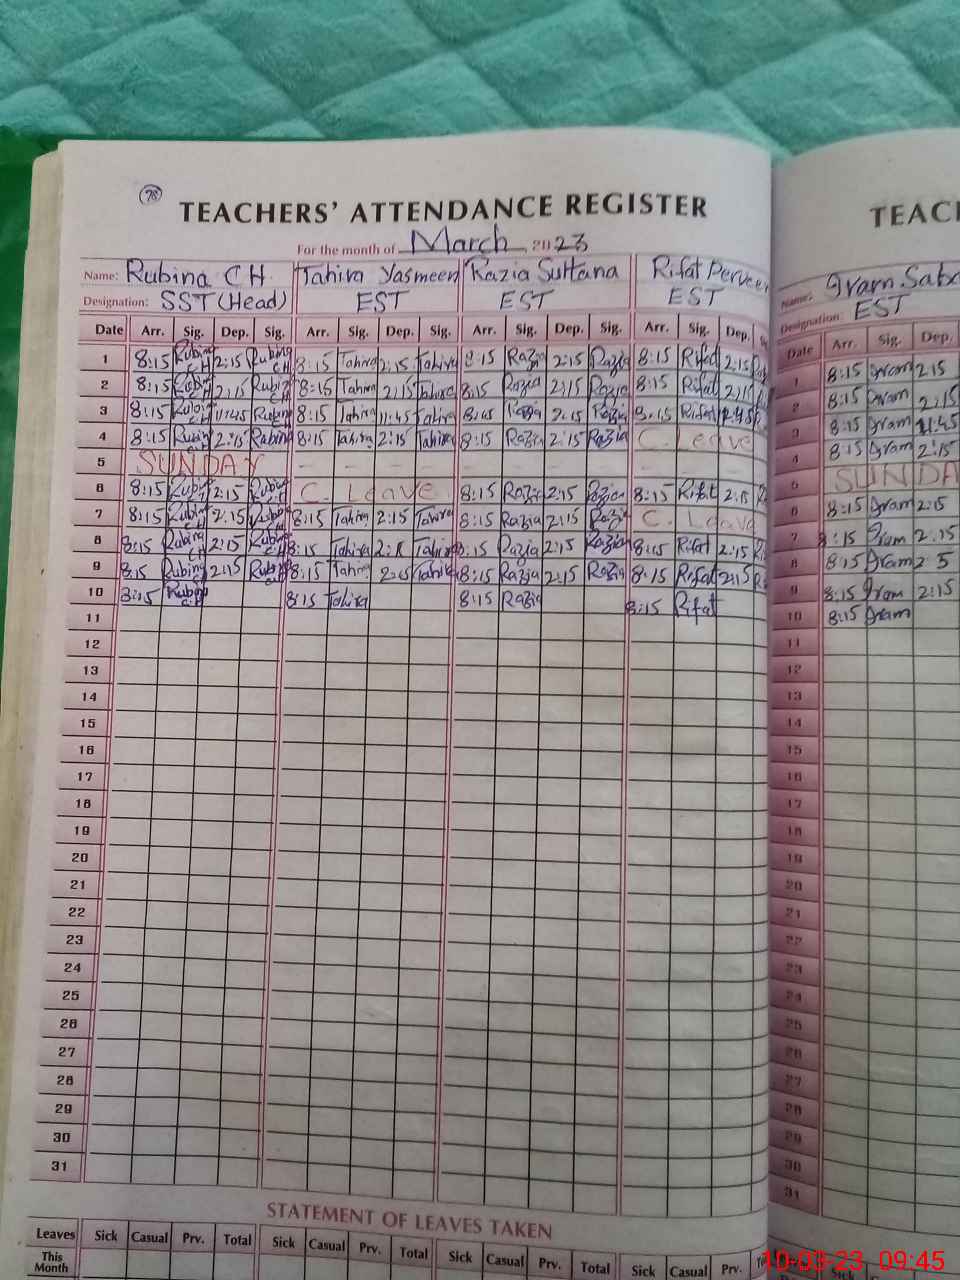 78
TEACHERS' ATTENDANCE REGISTER
For the month of March 2023
Name: Rubina CH Tahira Yasmeen Razia Sultana Rifat Perveen
Designation: SST (Head) EST EST EST
Date Arr. Sig. Dep. Sig. Arr. Sig. Dep. Sig. Arr. Sig. Dep. Sig. Arr. Sig. Dep.
1 8:15 Rubina CH 2:15 Rubina CH 8:15 Tahira 2:15 Tahira 8:15 Razia 2:15 Razia 8:15 Rifat 2:15
2 8:15 Rubina CH 2:15 Rubina CH 8:15 Tahira 2:15 Tahira 8:15 Razia 2:15 Razia 8:15 Rifat 2:15
3 8:15 Rubina CH 11:45 Rubina CH 8:15 Tahira 11:45 Tahira 8:15 Razia 2:15 Razia 8:15 Rifat
4 8:15 Rubina CH 2:15 Rubina CH 8:15 Tahira 2:15 Tahira 8:15 Razia 2:15 Razia C. Leave
5 SUNDAY
6 8:15 Rubina 2:15 Rubina CH C. Leave 8:15 Razia 2:15 Razia 8:15 Rifat 2:15
7 8:15 Rubina CH 2:15 Rubina CH 8:15 Tahira 2:15 Tahira 8:15 Razia 2:15 Razia C. Leave
8 8:15 Rubina CH 2:15 Rubina CH 8:15 Tahira Tahira 8:15 Razia 2:15 Razia 8:15 Rifat 2:15
9 8:15 Rubina 2:15 Rubina 8:15 Tahira 2:15 Tahira 8:15 Razia 2:15 Razia 8:15 Rifat 2:15
10 8:15 Rubina CH 8:15 Tahira 8:15 Razia 8:15 Rifat
11
12
13
14
15
16
17
18
19
20
21
22
23
24
25
26
27
28
29
30
31
STATEMENT OF LEAVES TAKEN
Leaves Sick Casual Prv. Total Sick Casual Prv. Total Sick Casual Prv. Total Sick Casual Prv.
This Month
TEAC
Name: Iram
Designation: EST
Date Arr. Sig. Dep.
1 8:15 Iram 2:15
2 8:15 Iram 2:15
3 8:15 Iram 11:45
4 8:15 Iram 2:15
5 SUNDA
6 8:15 Iram 2:15
7 8:15 Iram 2:15
8 8:15 Iram 2 5
9 8:15 Iram 2:15
10 8:15 Iram
11
12
13
14
15
16
17
18
19
20
21
22
23
24
25
26
27
28
29
30
31
10-03-23 09:45